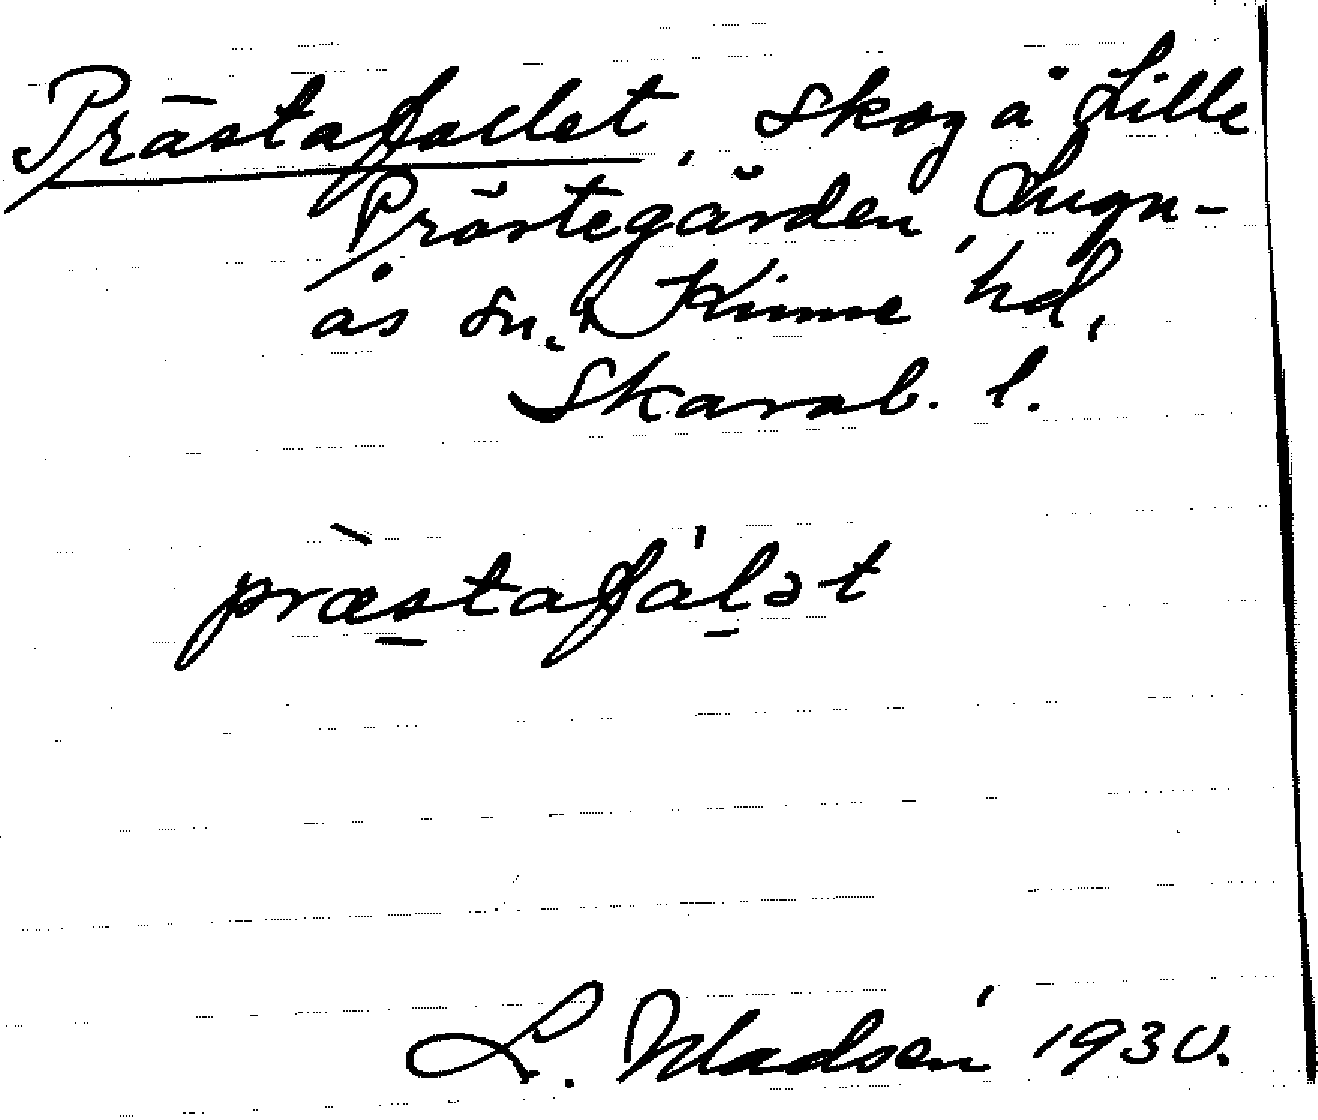 Prästafallet, skog å Lilla
Prästegården, Lugn-
ås sn, Kinne hd,
Skarab. l.
præstafálət
L. Madsén 1930.